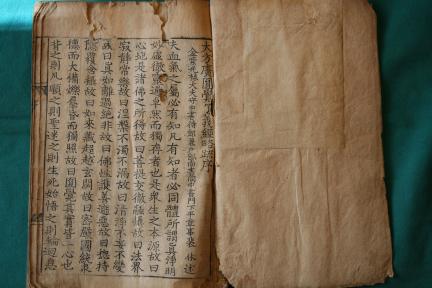 大方廣圓覺了義經略疏序
金紫光祿大夫守中書侍郎兼戶部尚書同中書門下平章事裴休述
夫血氣之屬必有知凡有知者必同體所謂真淨明
妙虛徹靈通卓然而獨存者也是衆生之本源故曰
心地是諸佛之所得故曰菩提交徹融攝故曰法界
寂靜常樂故曰涅槃不濁不漏故曰清淨不妄不變
故曰真如離過絕非故曰佛性護善遮惡故曰揔持
隱覆含攝故曰如來藏超越玄閟故曰密嚴國統衆
德而大備爍羣昏而獨照故曰圓覺其實皆一心也
背之則凡順之則聖迷之則生死始悟之則輪迴息